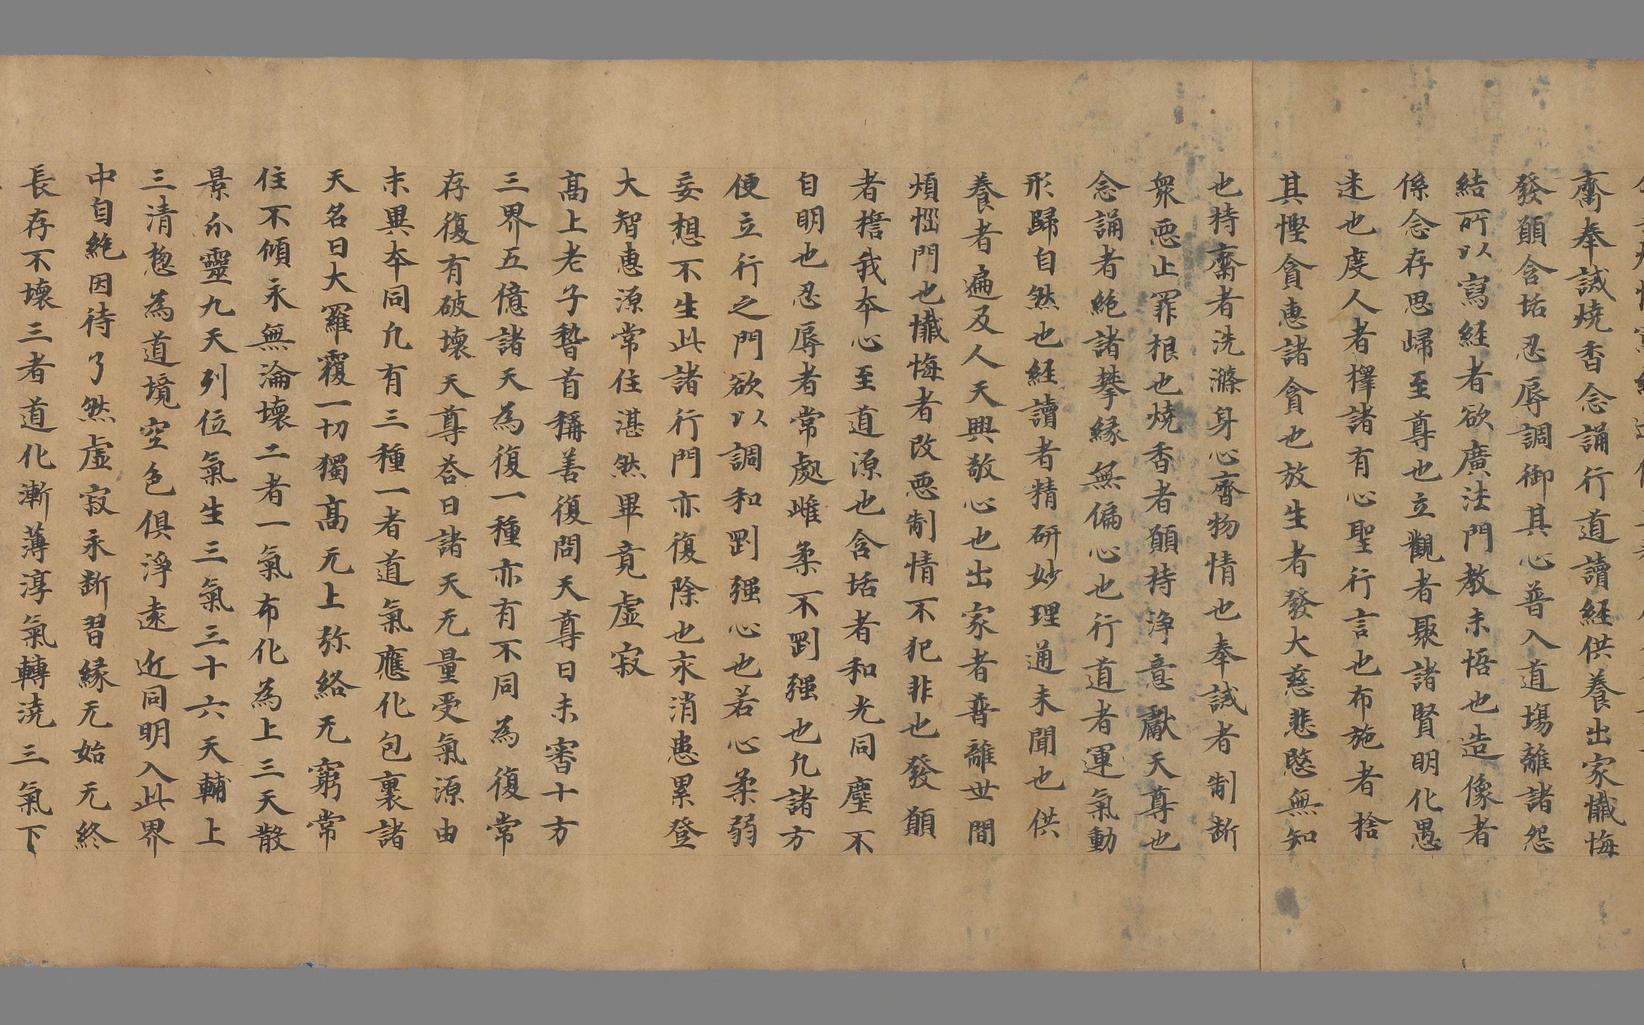 齋奉誡燒香念誦行道讀經供養出家懺悔
發願含垢忍辱調御其心普入道場離諸怨
結所以寫經者欲廣法門教未悟也造像者
係念存思歸至尊也立觀者聚諸賢明化愚
迷也度人者擇諸有心聖行言也布施者捨
其慳貪惠諸貧也放生者發大慈悲愍無知
也持齋者洗滌身心齊物情也奉誡者制斷
衆惡止罪根也燒香者願持淨意獻天尊也
念誦者絕諸攀緣無偏心也行道者運氣動
形歸自然也經讀者精研妙理通未聞也供
養者遍及人天興敬心也出家者普離世間
煩惱門也懺悔者改惡制情不犯非也發願
者檐我本心至道源也含垢者和光同塵不
自明也忍辱者常處雌柔不剛强也凢諸方
便立行之門欲以調和剛强心也若心柔弱
妄想不生此諸行門亦復除也永消患累登
大智惠源常住湛然畢竟虛寂
高上老子稽首稱善復問天尊曰未審十方
三界五億諸天為復一種亦有不同為復常
存復有破壞天尊荅曰諸天无量受氣源由
末異本同凢有三種一者道氣應化包裹諸
天名曰大羅覆一切獨高无上弥絡无窮常
住不傾永無淪壞二者一氣布化為上三天散
景分靈九天列位氣生三氣三十六天輔上
三清惣為道境空色俱淨遠近同明入此界
中自絕因待了然虛寂永斷習緣无始无終
長存不壞三者道化漸薄淳氣轉澆三氣下